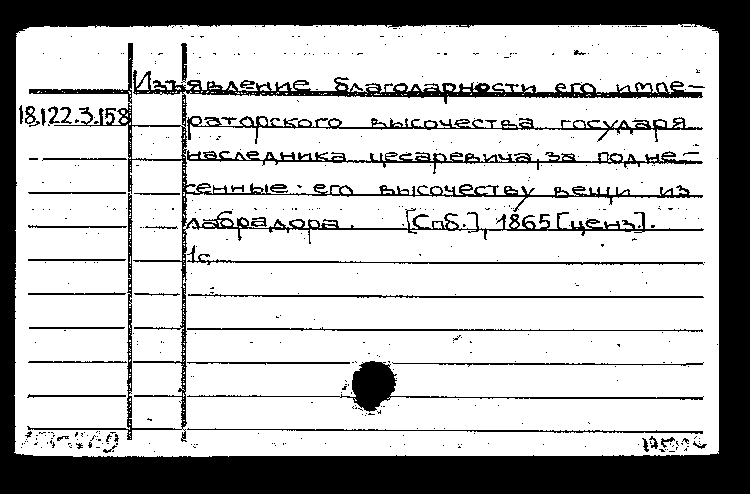 Изъявление благодарности его импе-
18.122.3.158 раторского высочества государя
наследника цесаревича, за подне-
сенные его высочеству вещи из
лабрадора. [Спб.], 1865 [ценз].
1с.